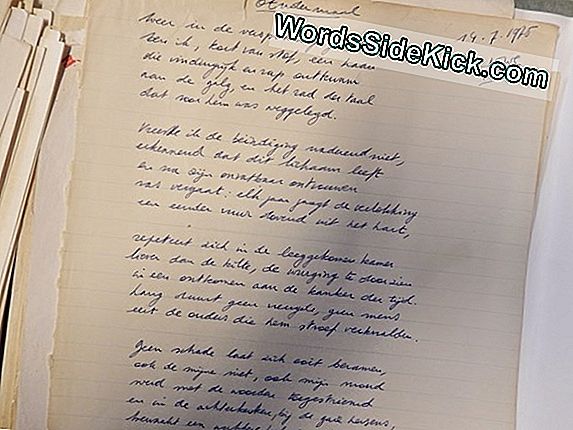 Andermaal
14.7.1975
WordsSideKick.com
Weer in de
ben ik, kort van stof, een haan
die vindingrijk en rap ontkwam
aan de galg, en het rad der taal
dat voor hem was weggelegd.
Vreesde ik de beëindiging naderend niet,
erkennend dat dit lichaam leeft
en na zijn onvatbaar ontvouwen
ras vergaat: elk jaar jaagt de verlokking
een eender vuur dovend uit het hart,
repeteert zich in de leeggekomen kamer
liever dan de kilte, de wurging te doorzien
in een ontkomen aan de kanker der tijd.
Lang duurt geen vreugde, geen mens
eert de ouders die hem stroef verknalden.
Geen schade laat zich ooit beramen,
ook de mijne niet, ook mijn mond
werd met de woorden toegestriemd
en in de achterkerker, bij de